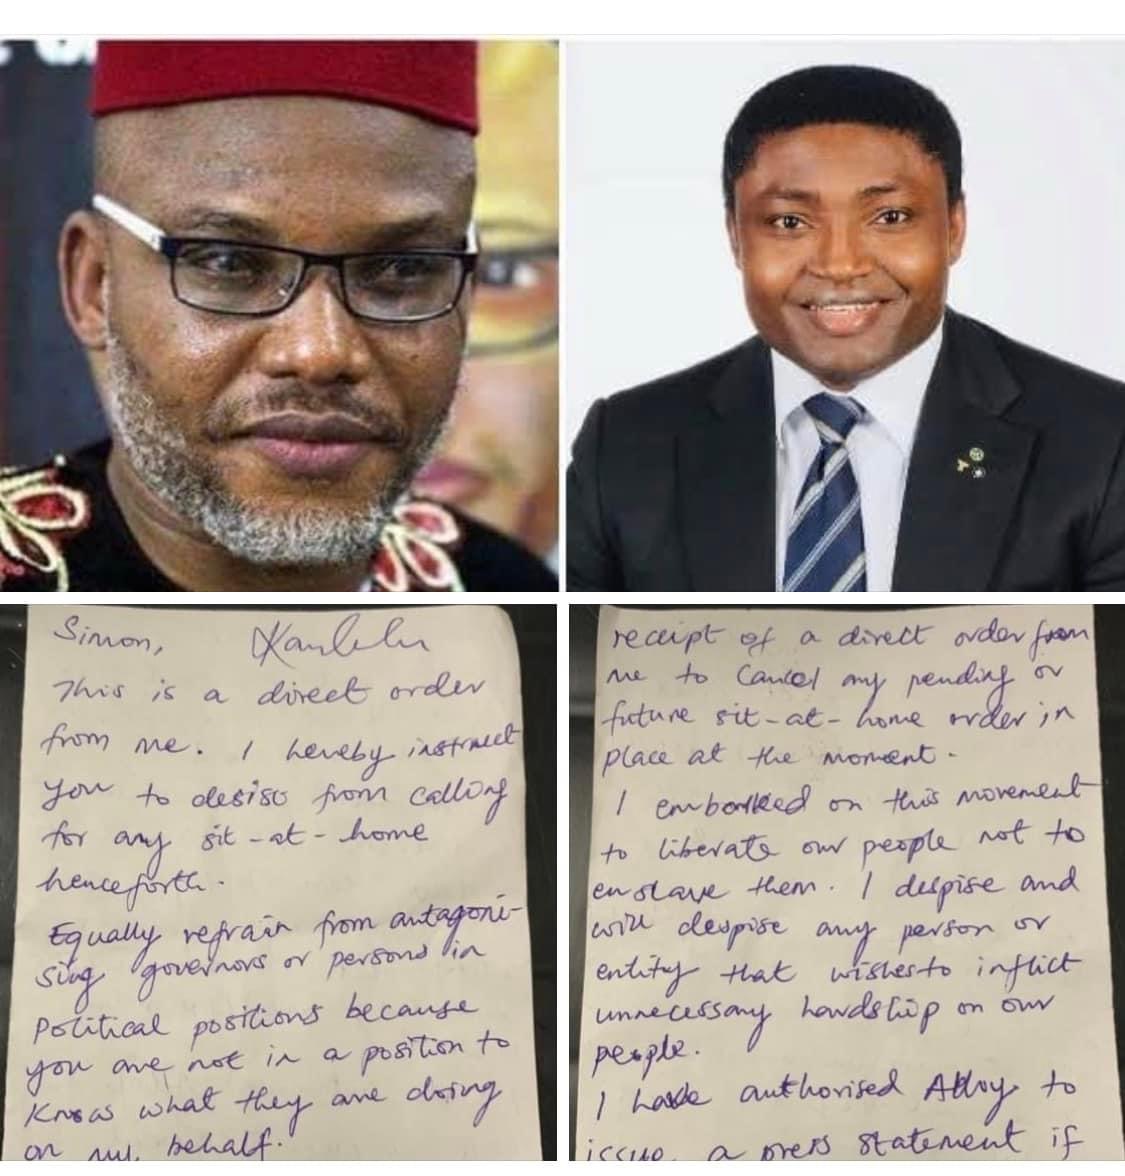 Simon,
This is a direct order
from me. I hereby instruct
you to desist from calling
for any sit-at-home
henceforth.
Equally refrain from antagoni-
sing governors or persons in
political positions because
you are not in a position to
know what they are doing
on my behalf.
receipt of a direct order from
me to cancel any pending or
future sit-at-home order in
place at the moment.
I embarked on this movement
to liberate our people not to
enslave them. I despise and
will despise any person or
entity that wishes to inflict
unnecessary hardship on our
people.
I have authorised Alloy to
issue a press statement if